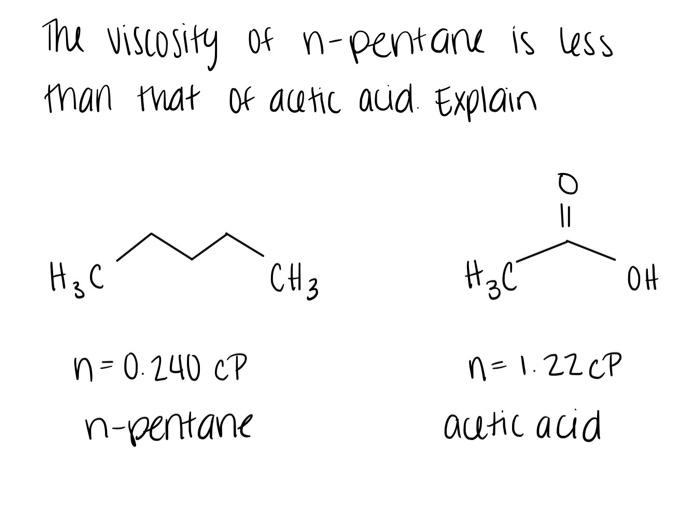 The viscosity of n-pentane is less
than that of acetic acid. Explain
O
H₃C CH₃ H₃C OH
n = 0.240 cP n = 1.22 cP
n-pentane acetic acid